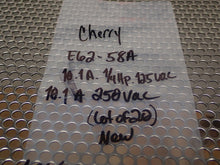 Cherry
E62-58A
10.1A. 1/4Hp. 125vac
10.1A 250Vac
(Lot of 20)
New